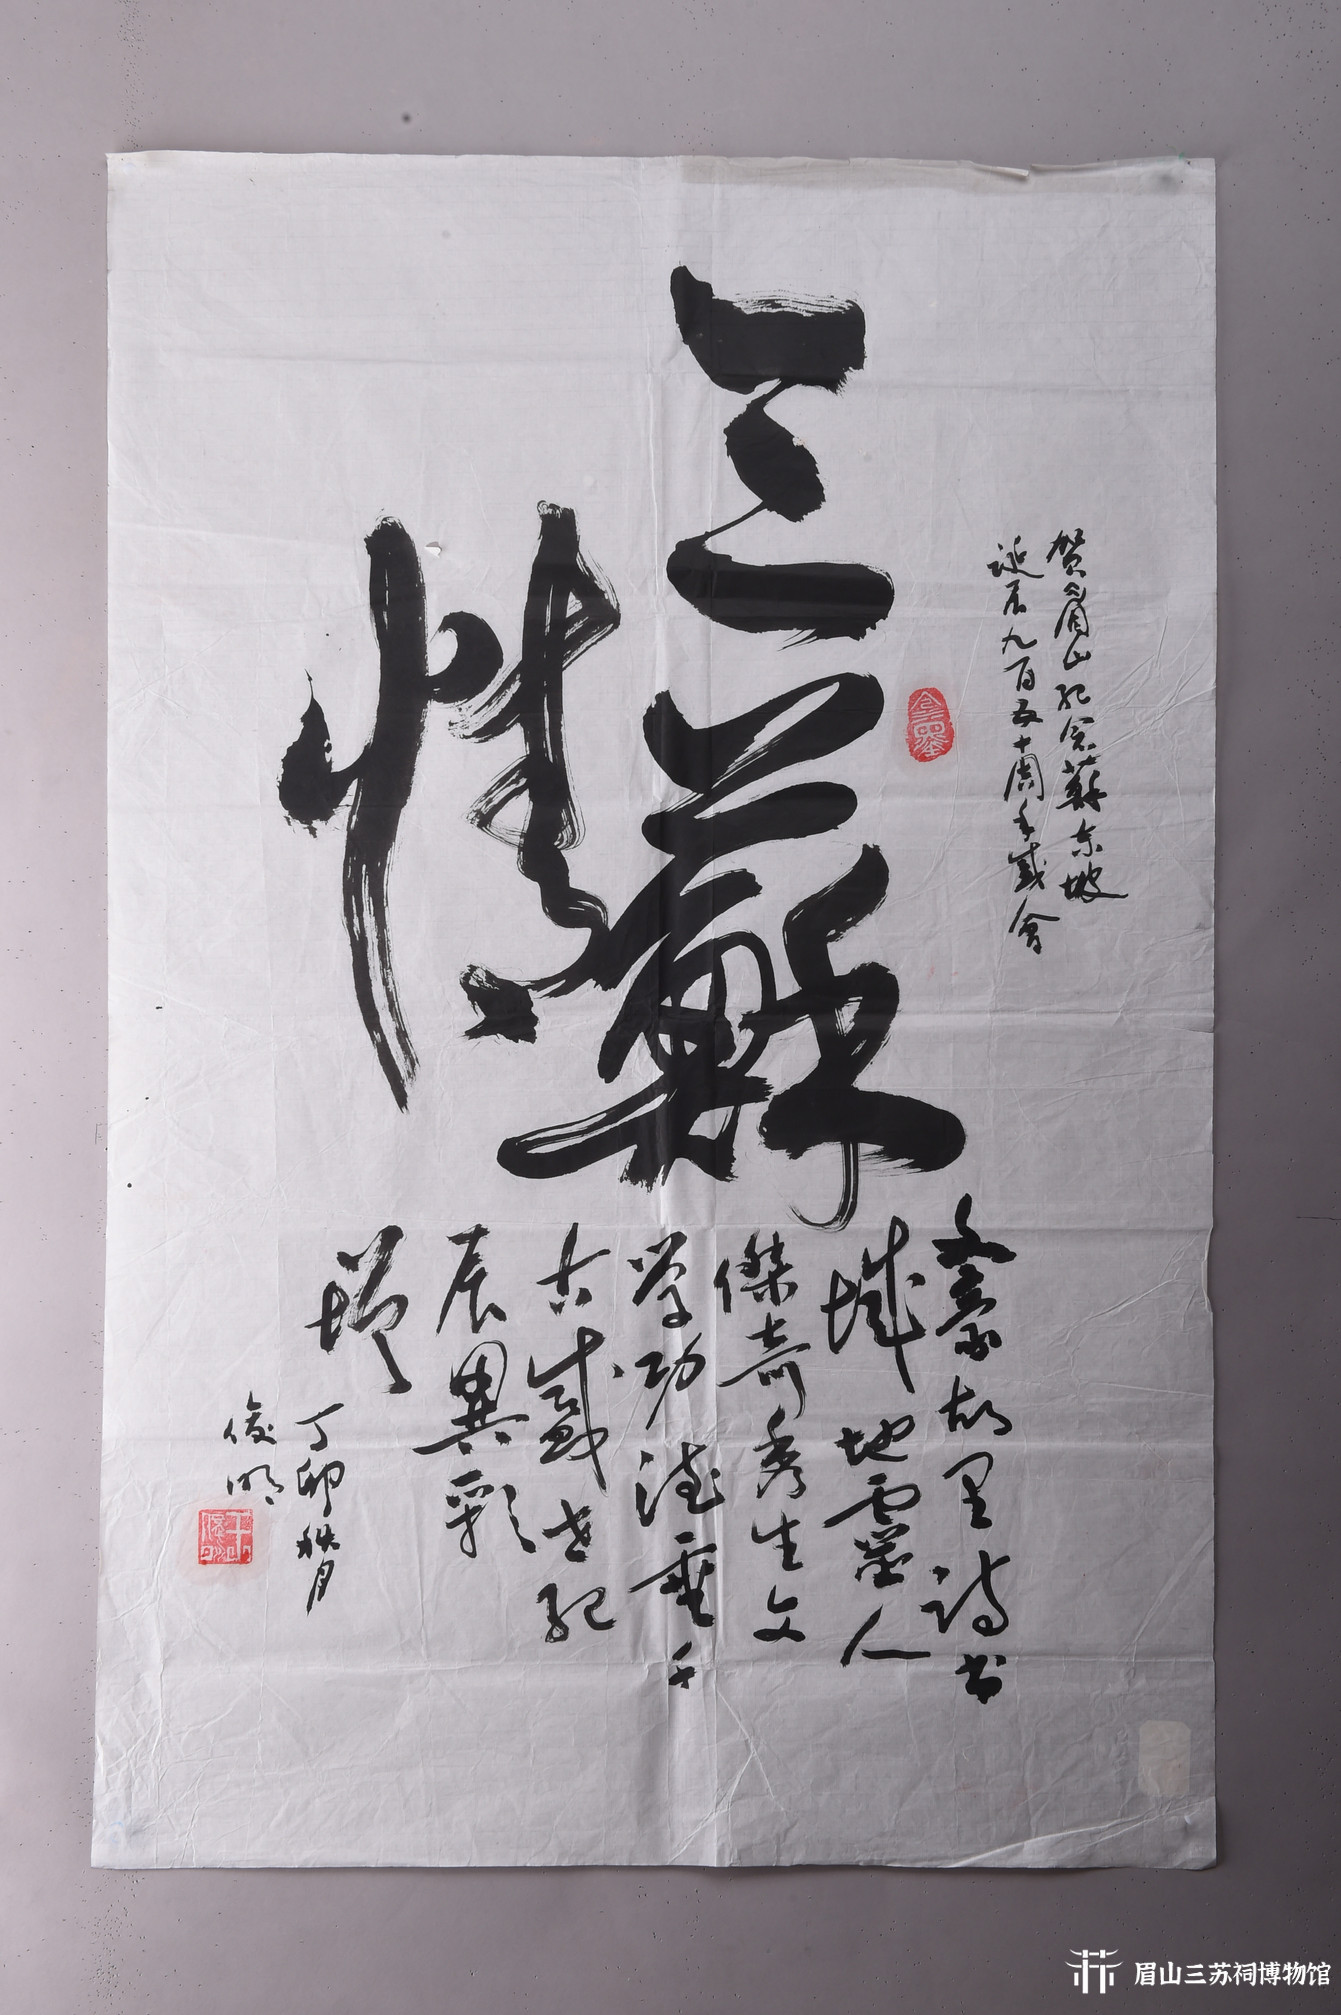 贺眉山纪念蘇东坡
诞辰九百五十周年盛會
三蘇
情
文豪故里诗书
城地靈人
傑奇秀生文
学功德垂千
古盛世纪
辰異彩
增
丁卯秋月
俊明
眉山三苏祠博物馆